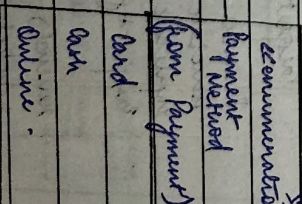 <<enumeration>>
Payment
Method
(from Payment)
Card
Cash
Online.